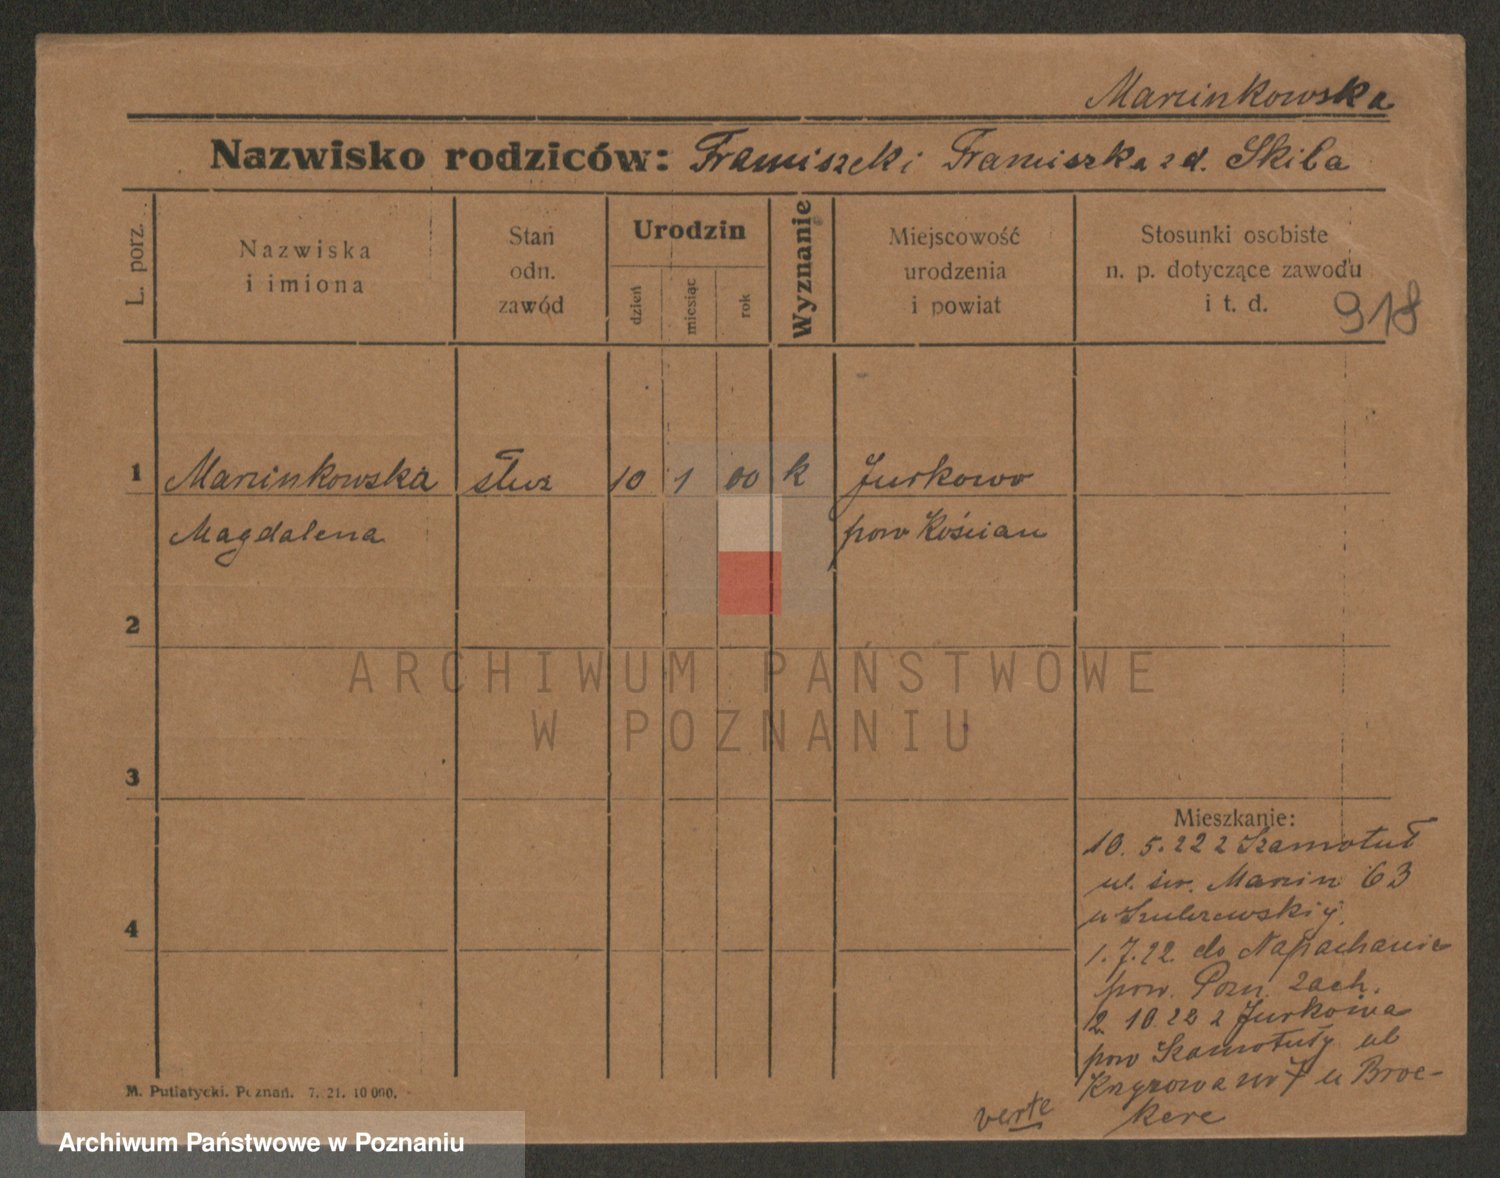 Marcinkowska
Nazwisko rodziców: Franciszek i Franciszka z d. Skiba
L. porz.
Nazwiska
i imiona
Stań
odn.
zawód
Urodzin
dzień
miesiąc
rok
Wyznanie
Miejscowość
urodzenia
i powiat
Stosunki osobiste
n. p. dotyczące zawodu
i t. d.
918
1 Marcinkowska służ 10 1 00 k Jurkowo
Magdalena pow Kościan
2
3
4
Mieszkanie:
10. 5. 22 z Szamotuł
ul. św. Marcin 63
u
1. 7. 22. do Napachanie
pow. Pozn. zach.
2. 10. 22 z Jurkowa
pow Szamotuły ul
Krzyżowa nr 7 u Broe-
kere
verte
M. Putiatycki. Poznań. 7. 21. 10 000.
ARCHIWUM PAŃSTWOWE
W POZNANIU
Archiwum Państwowe w Poznaniu